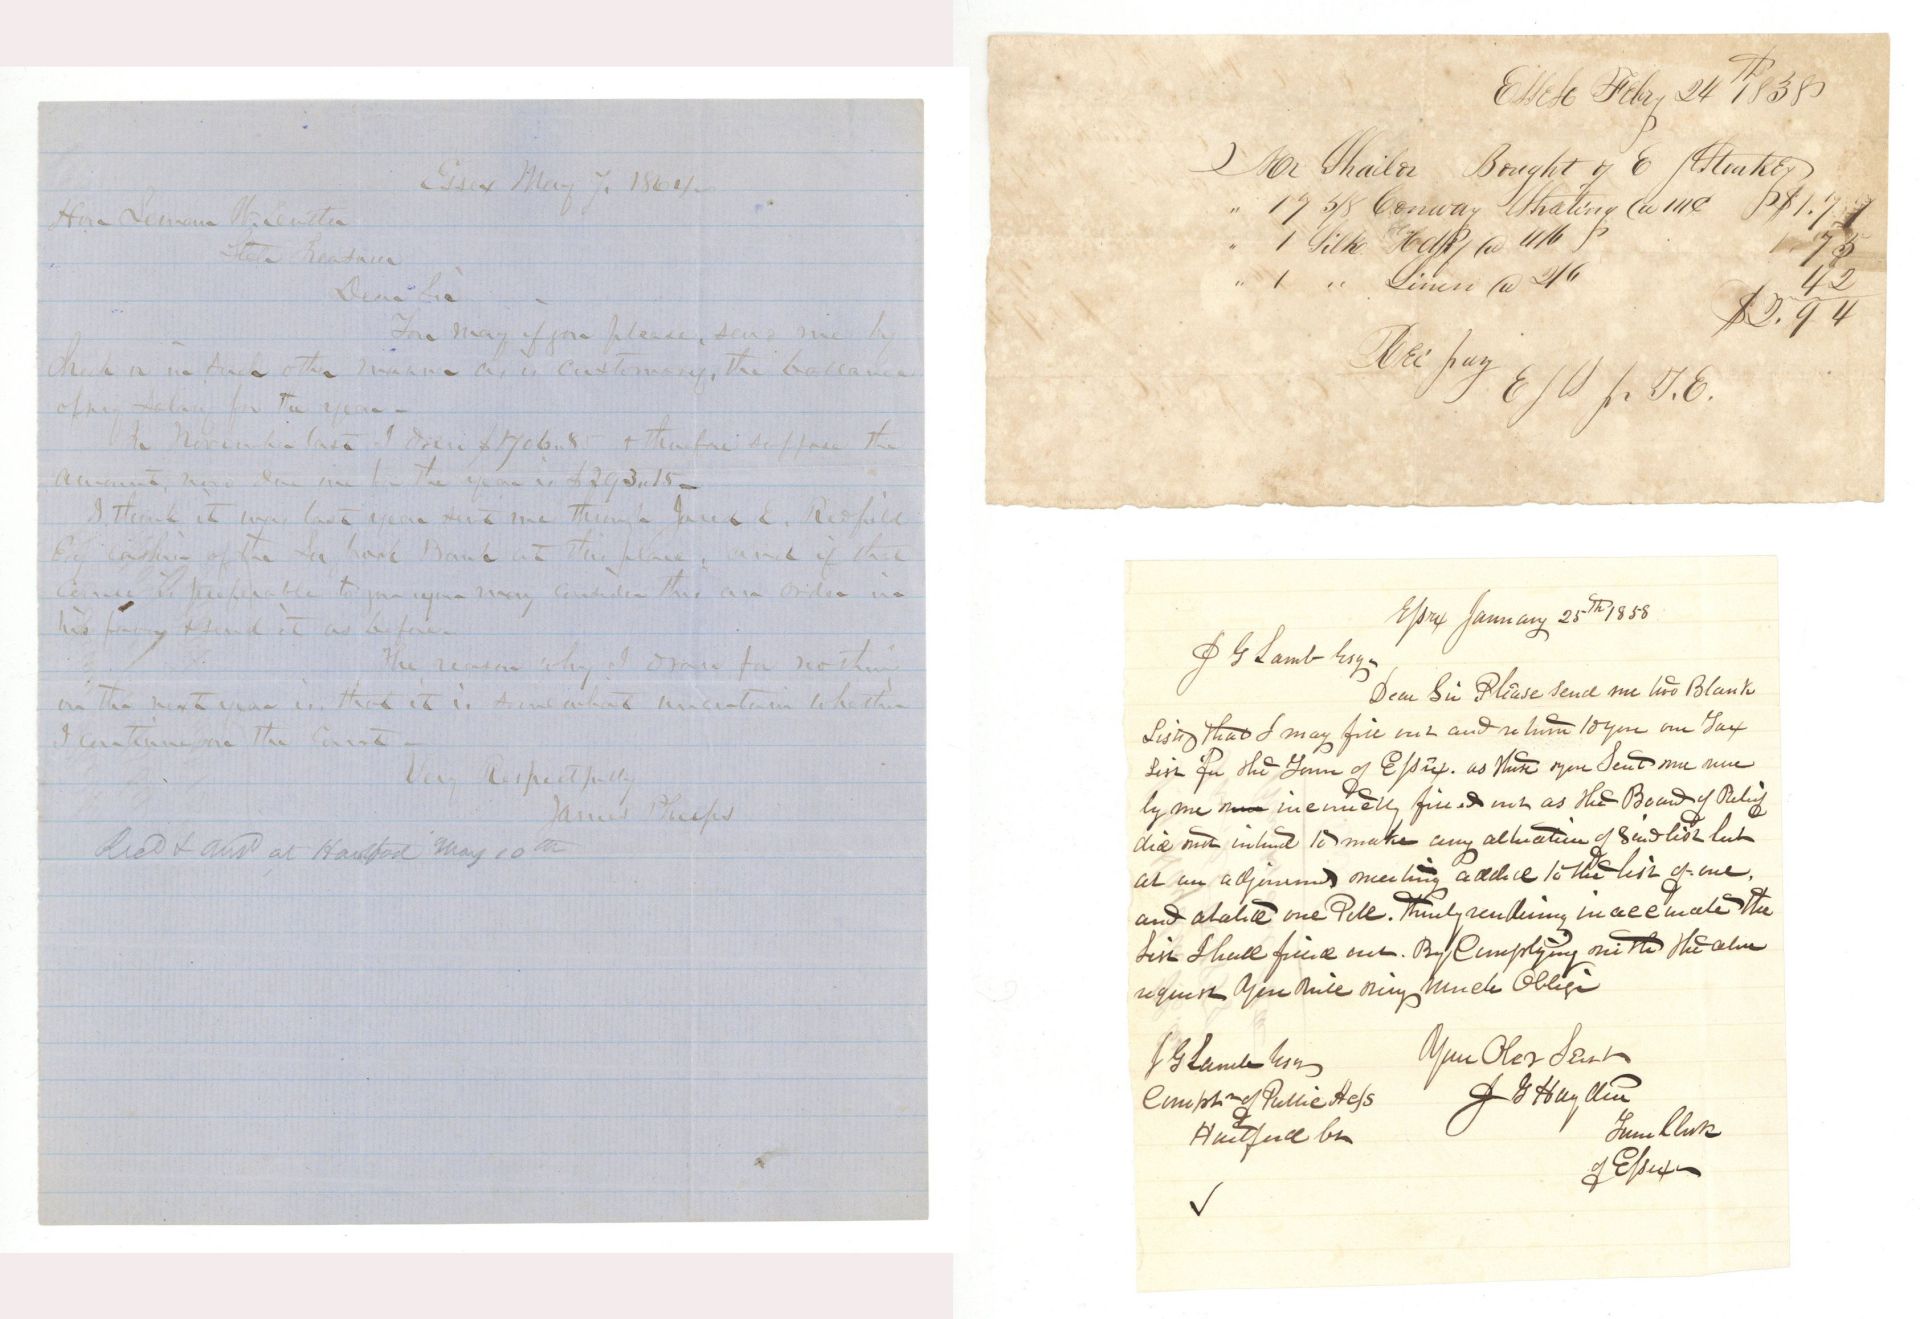 Essex May 7. 1864
Hon
State Treasurer
Dear Sir
You may if you please, send me by
check or in such other manner as is customary, the ballance
of my salary for the year -
In November last I drew $706.85 & therefore suppose the
amount, now due me for the year is $293.15 -
I think it was last year sent me through Jared E. Redfield
Esq cashier of the Bank at this place, and if that
course is preferable to you you may consider this an order in
his favor & send it as before.
The reason why I draw for nothing
on the next year is, that it is somewhat uncertain whether
I continue on the Court -
Very Respectfully
James Phelps
Recd & Ansd at Hartford May 10th
Essex Feby 24th 1838
Mr Shailor Bought of E
" 17 5/8 Conway @ $1.77
" 1 Silk Hdkf @ 4/6 75
" 1 " Linen @ 2/6 42
$2.94
Rec pay
Essex January 25th 1858
J G Lamb Esq
Dear Sir Please send me two Blank
Lists that I may fill out and return to you our Tax
List for the Town of Essex. as those you Sent me were
by me incorrectly filled out as the Board of Relief
did not intend to make any alteration of Said list but
at an adjourned meeting added to the list of one,
and abated one Poll. Thereby rendering inaccurate the
List I had filled out. By Complying with the above
request You will very much Oblige
Your Obt Servt
J G Hayden
Town Clerk
of Essex
J G Lamb Esq
Compt of Public
Hartford Ct